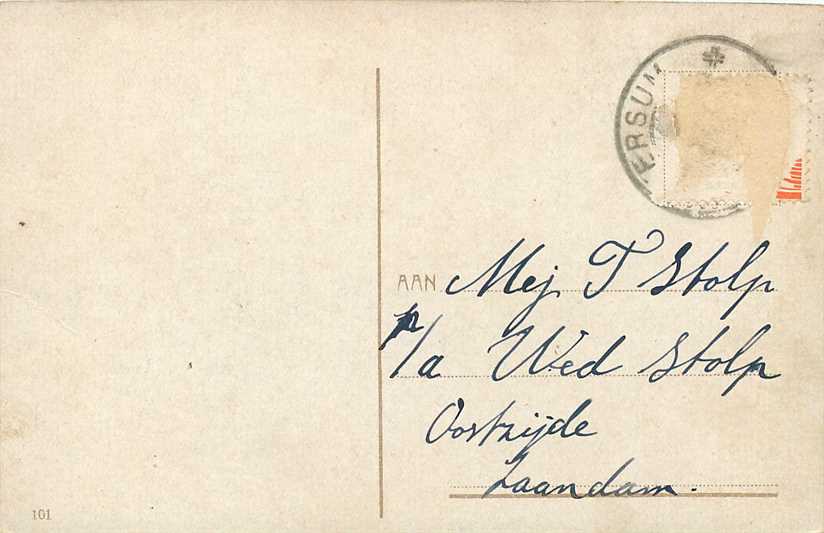 ERSUM
AAN Mej T Stolp
p/a Wed Stolp
Oostzijde
Zaandam.
101